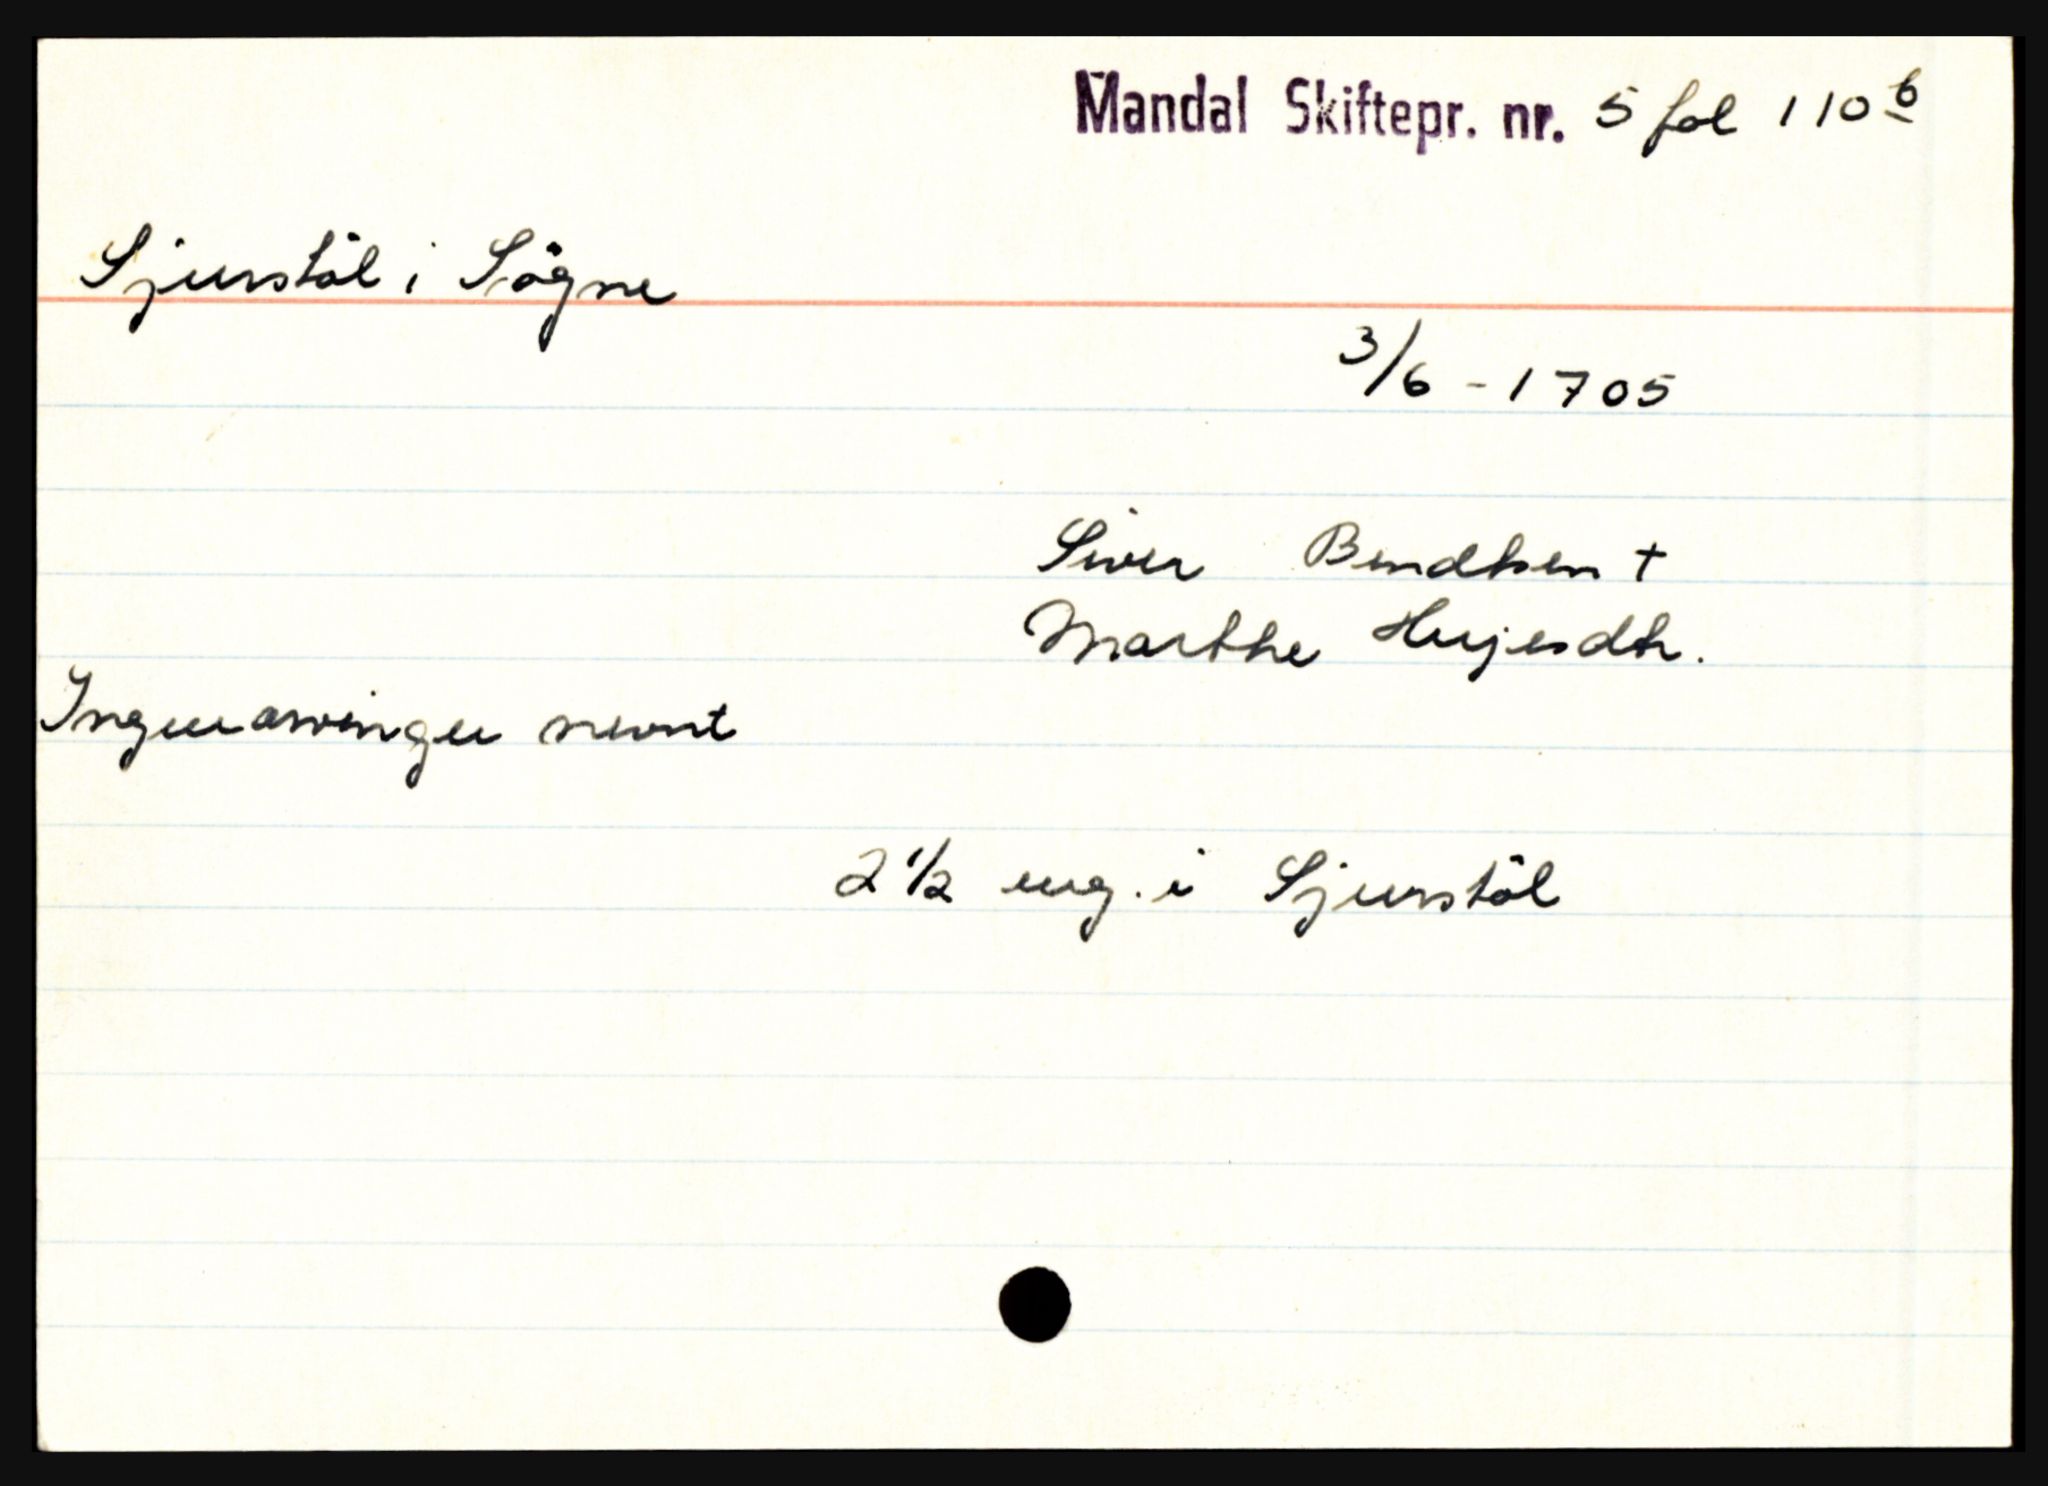 Mandal Skiftepr. nr. 5 fol 110 b
Sjurstöl i Sögne
3/6 - 1705
Siver Bendtsen +
Marthe Herjesdtr.
Ingen arvinger nevnt
2 1/2 eng. i Sjurstöl